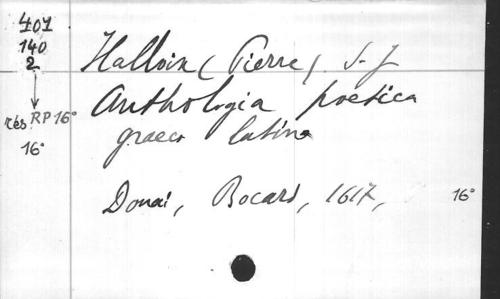 401
140
2
Halloix (Pierre) S. J
Anthologia poetica
graeco latina
rés RP 16°
16°
Douai, Bocard, 1617, 16°